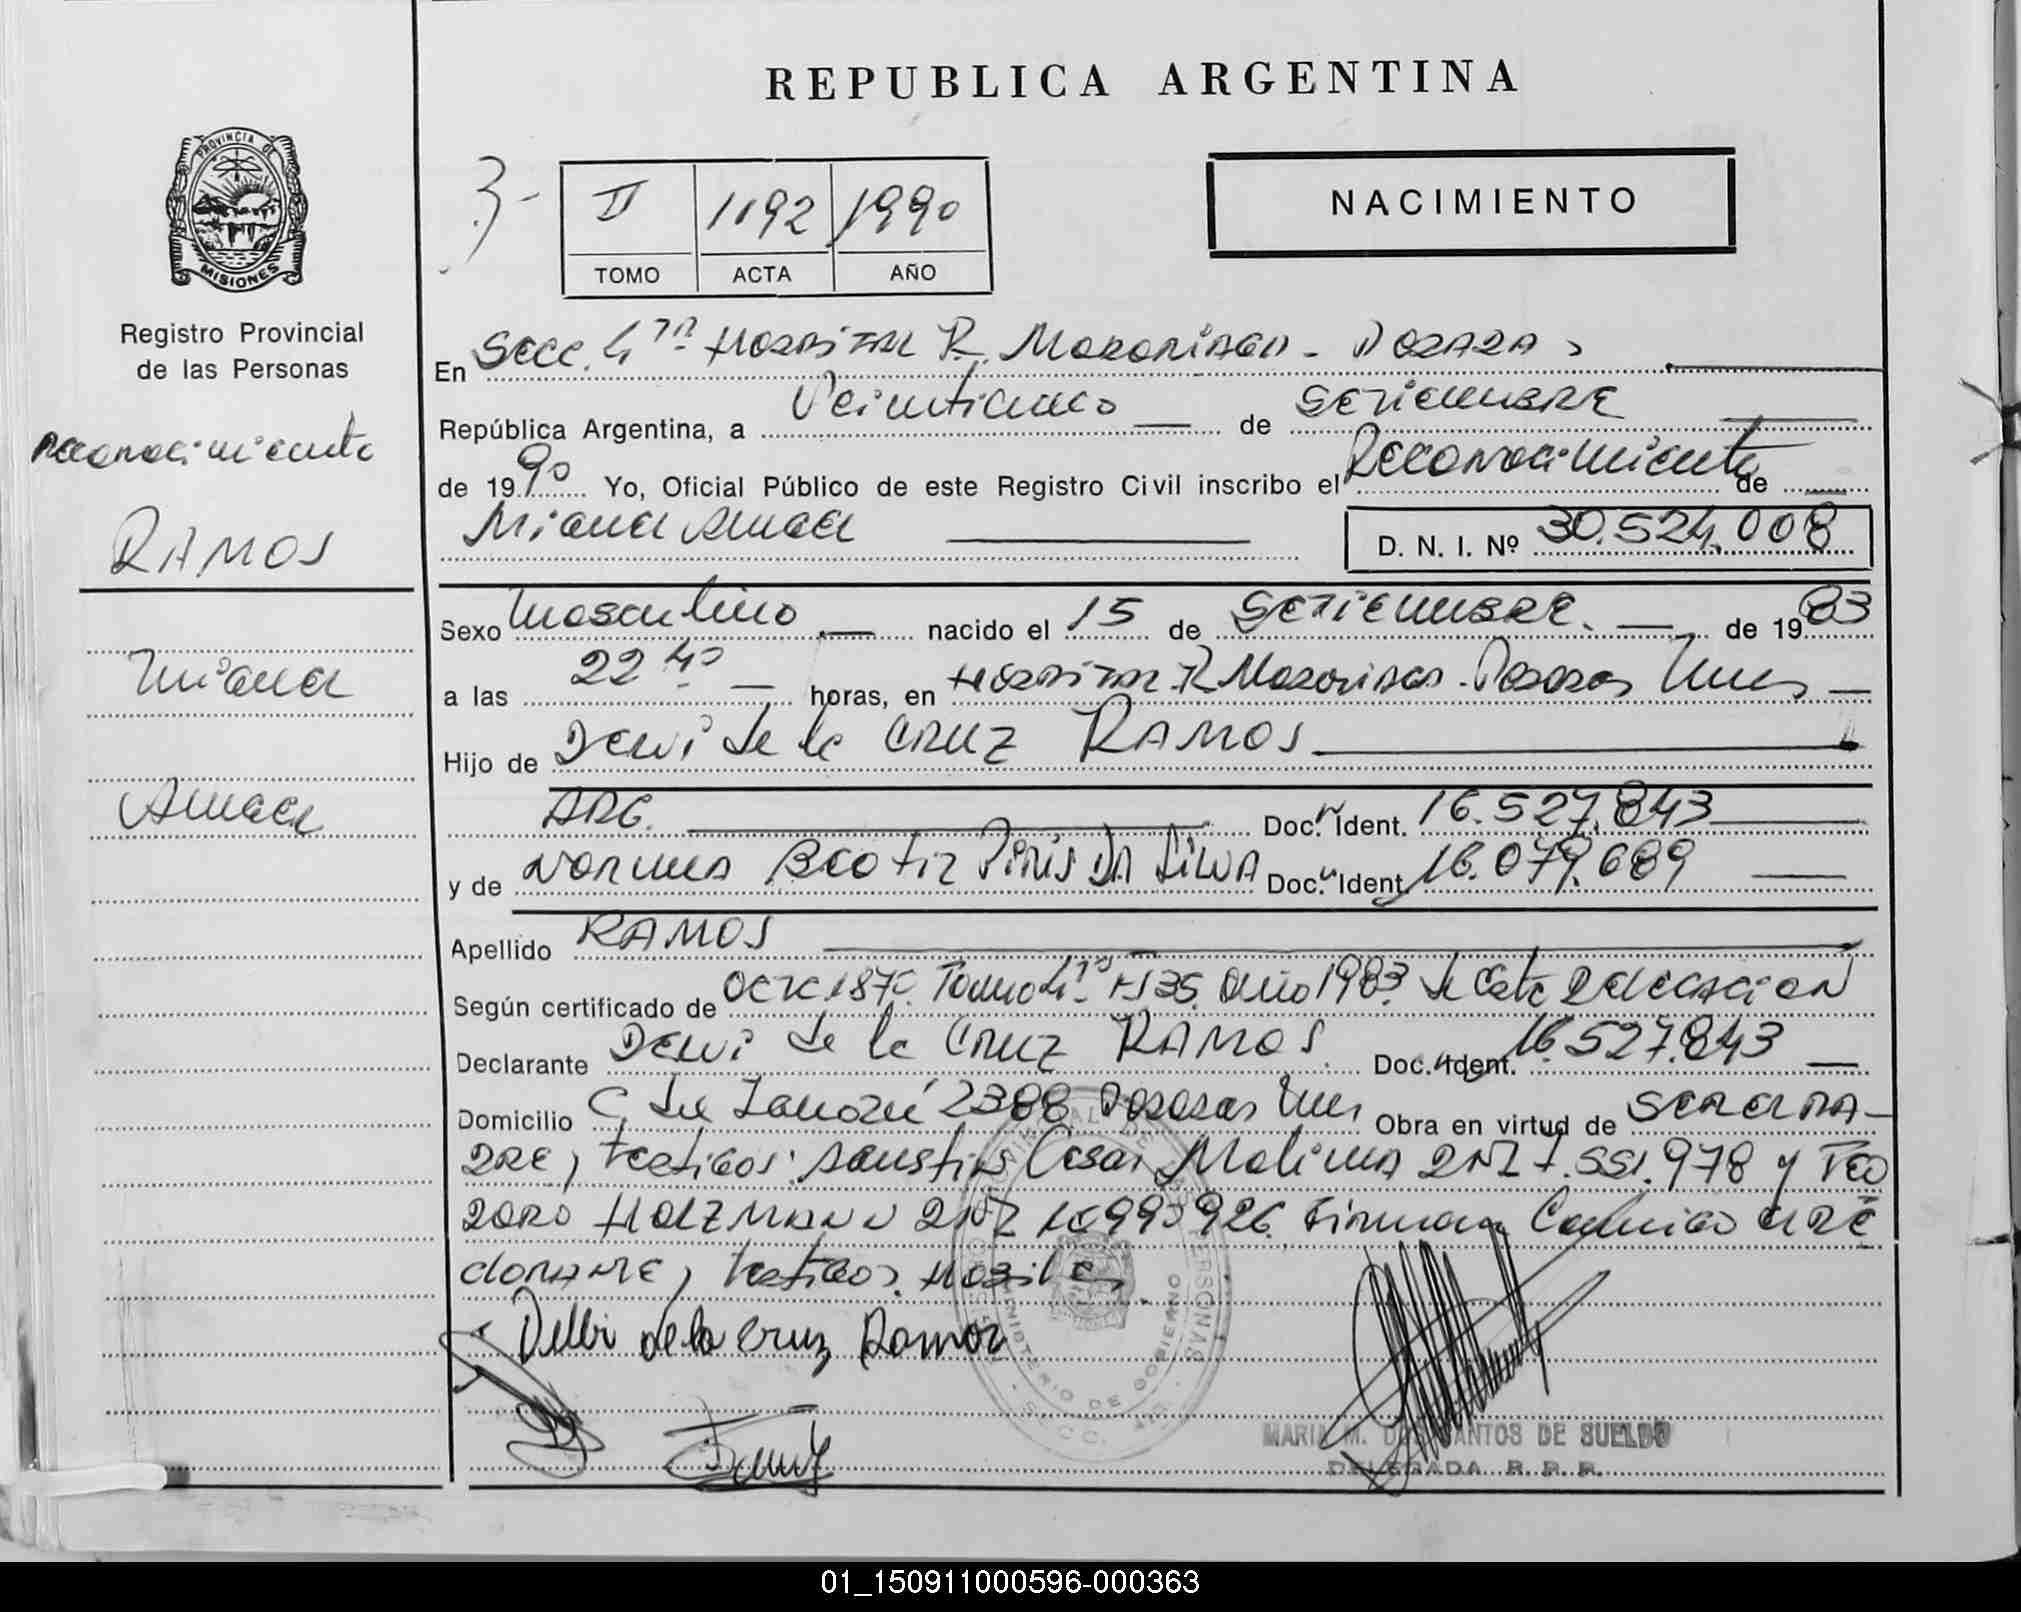 REPUBLICA ARGENTINA
PROVINCIA DE
MISIONES
Registro Provincial
de las Personas
3-
II 1192 1990
TOMO ACTA AÑO
NACIMIENTO
En Secc. 4ta Hospital R. Madariaga - Posadas
República Argentina, a Veinticinco de Setiembre
de 1990 Yo, Oficial Público de este Registro Civil inscribo el Reconocimiento de
Miguel Angel D. N. I. Nº 30.524.008
Reconocimiento
RAMOS
Miguel
Angel
Sexo Masculino nacido el 15 de Setiembre de 1983
a las 22 40 horas, en Hospital R Madariaga - Posadas Mnes
Hijo de Delvi de la Cruz RAMOS
ARG. Doc. Ident. 16.527.843
y de Norma Beatriz Piris Da Silva Doc. Ident 16.079.689
Apellido RAMOS
Según certificado de Acta 1870 Tomo 4to Fº 35 Año 1983 de esta Delegacion
Declarante Delvi de la Cruz RAMOS Doc. Ident. 16.527.843
Domicilio 2388 Posadas Mnes Obra en virtud de ser el pa-
dre, testigos: Cesar Molina DNI 7.551.978 y Teo
doro HOLZMANN DNI 10990926 Firman Conmigo el de
clarante, testigos
Delbi de la Cruz Ramos
MINISTERIO DE GOBIERNO
MARIA M. DOS SANTOS DE SUELDO
DELEGADA R. P. P.
01_150911000596-000363